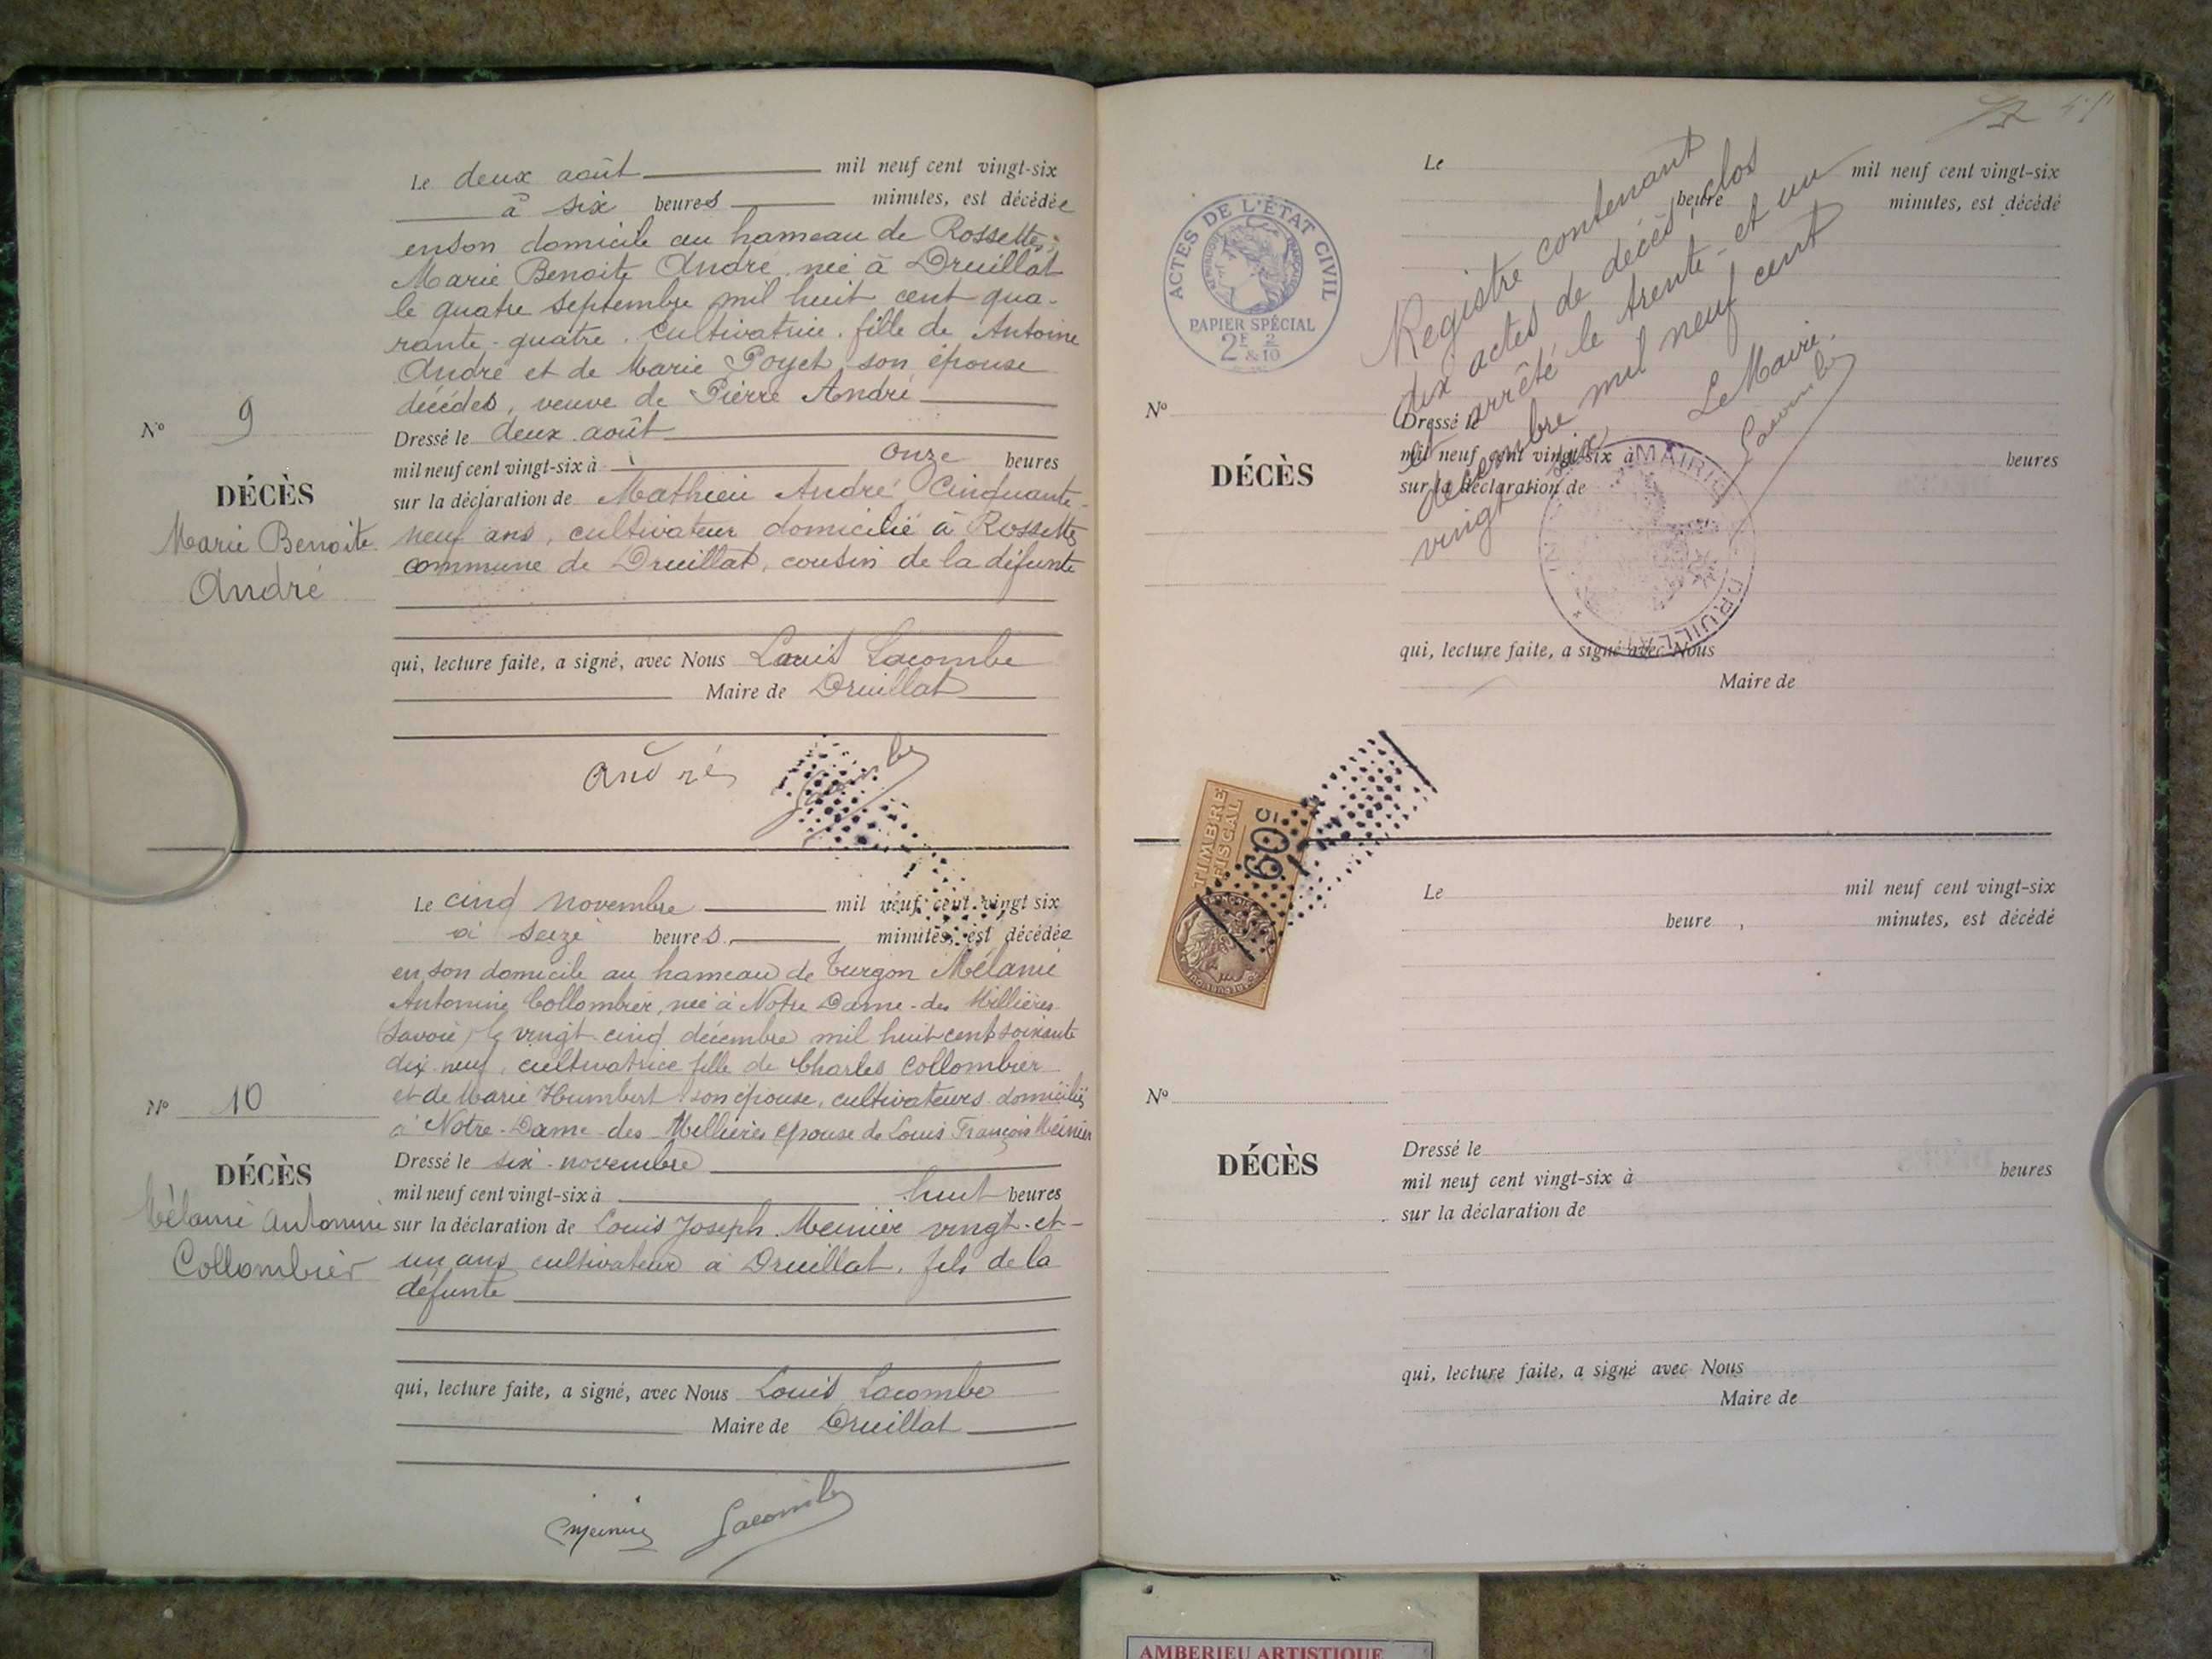 Le deux août mil neuf cent vingt-six
à six heures minutes, est décédée
en son domicile au hameau de Rossettes
Marie Benoite André, née à Druillat
le quatre septembre mil huit cent qua-
rante-quatre. Cultivatrice. fille de Antoine
André et de Marie Poyet, son épouse
décédés, veuve de Pierre André
N° 9
Dressé le deux août
mil neuf cent vingt-six à onze heures
DÉCÈS
Marie Benoite
André
sur la déclaration de Mathieu André Cinquante-
neuf ans, cultivateur domicilié à Rossettes
commune de Druillat, cousin de la défunte
qui, lecture faite, a signé, avec Nous Louis Lacombe
Maire de Druillat
André Lacombe
Le cinq novembre mil neuf cent vingt six
à seize heures, minutes, est décédée
en son domicile au hameau de Turgon Mélanie
Antonine Collombier, née à Notre Dame-des Millières
Savoie, le vingt-cinq décembre mil huit cent soixante
dix-neuf, cultivatrice fille de Charles Collombier
et de Marie Humbert son épouse, cultivateurs domiciliés
à Notre-Dame-des-Millières épouse de Louis François Meinier
N° 10
Dressé le six novembre
mil neuf cent vingt-six à huit heures
DÉCÈS
Mélanie Antonine
Collombier
sur la déclaration de Louis Joseph Meinier vingt-et-
un ans cultivateur à Druillat, fils de la
défunte
qui, lecture faite, a signé, avec Nous Louis Lacombe
Maire de Druillat
Meinier Lacombe
Le mil neuf cent vingt-six
heure minutes, est décédé
ACTES DE L'ÉTAT CIVIL
RÉPUBLIQUE FRANÇAISE
PAPIER SPÉCIAL
2F 2/10
&
Registre contenant
dix actes de décès, clos
et arrêté le trente-et un
décembre mil neuf cent
vingt six
Le Maire.
Lacombe
N°
DÉCÈS
Dressé le
mil neuf cent vingt-six à heures
sur la déclaration de
MAIRIE
DRUILLAT
qui, lecture faite, a signé avec Nous
Maire de
TIMBRE
FISCAL
60c
Le mil neuf cent vingt-six
heure , minutes, est décédé
N°
DÉCÈS
Dressé le
mil neuf cent vingt-six à heures
sur la déclaration de
qui, lecture faite, a signé avec Nous
Maire de
AMBERIEU ARTISTIQUE